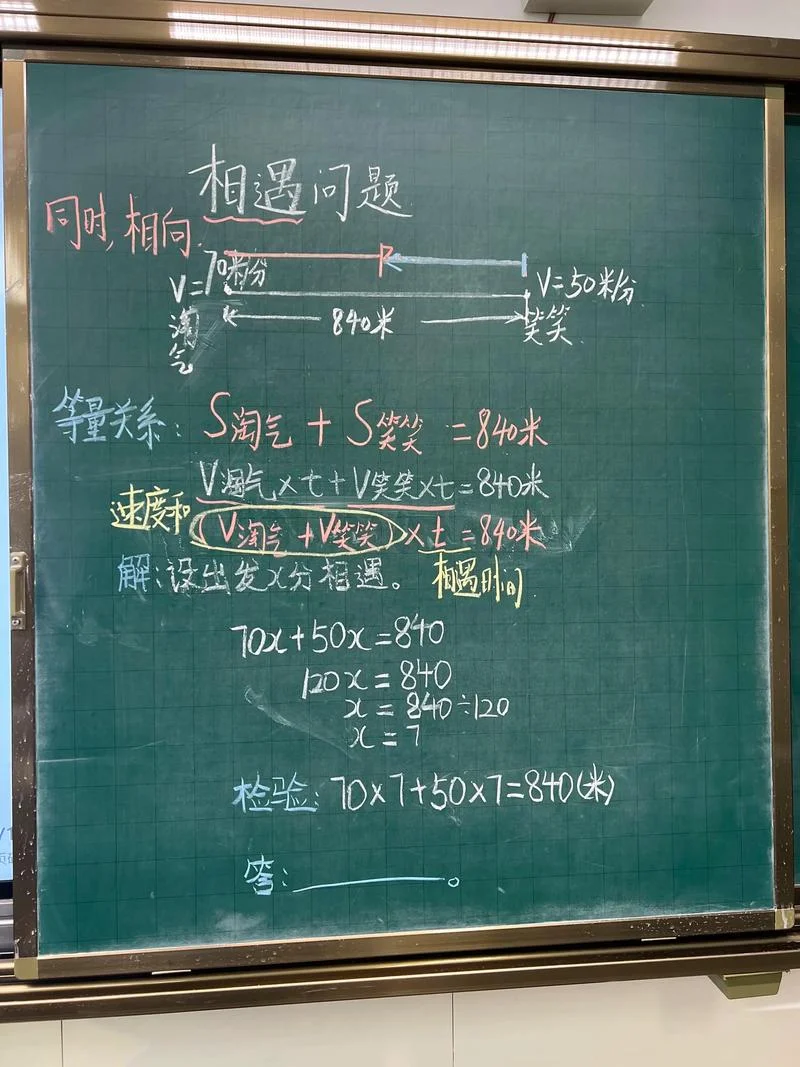 相遇问题
同时,相向.
V=70米/分
V=50米/分
淘气
840米
笑笑
等量关系: S淘气+S笑笑=840米
V淘气×t+V笑笑×t=840米
速度和 (V淘气+V笑笑)×t=840米
解:设出发x分相遇。 相遇时间
70x+50x=840
120x=840
x=840÷120
x=7
检验: 70×7+50×7=840(米)
答:________。